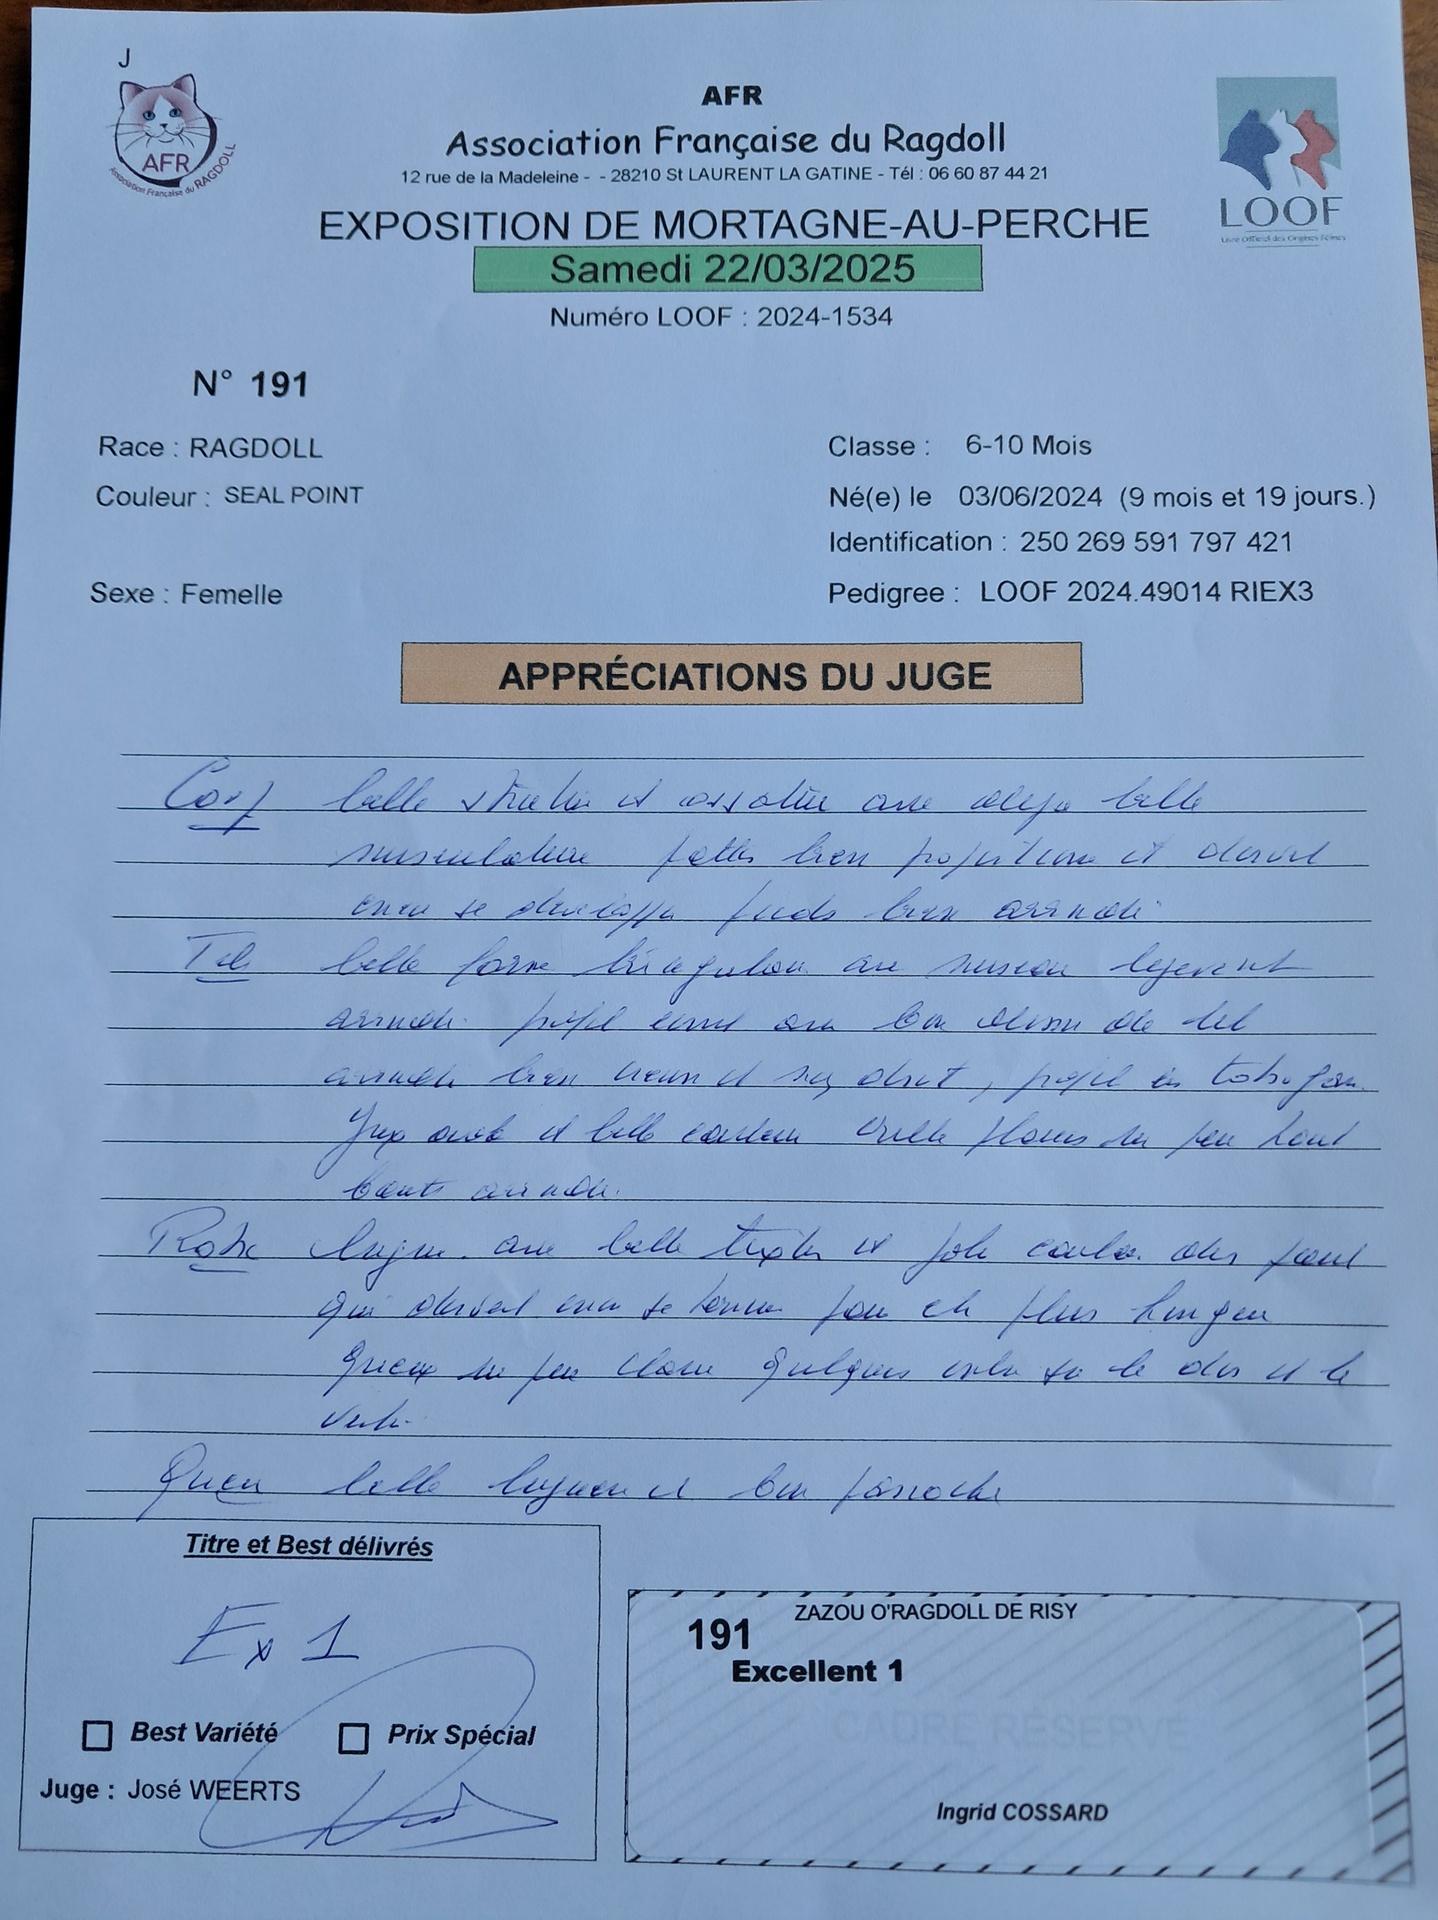 J
AFR
Association Française du RAGDOLL
AFR
Association Française du Ragdoll
12 rue de la Madeleine - - 28210 St LAURENT LA GATINE - Tél : 06 60 87 44 21
LOOF
Livre Officiel des Origines Félines
EXPOSITION DE MORTAGNE-AU-PERCHE
Samedi 22/03/2025
Numéro LOOF : 2024-1534
N° 191
Race : RAGDOLL
Classe : 6-10 Mois
Couleur : SEAL POINT
Né(e) le 03/06/2024 (9 mois et 19 jours.)
Identification : 250 269 591 797 421
Sexe : Femelle
Pedigree : LOOF 2024.49014 RIEX3
APPRÉCIATIONS DU JUGE
Corps belle et ossature avec déjà belle
musculature pattes bien et devrait
se développer pieds bien arrondi
Tête belle forme triangulaire au museau légèrement
arrondi. profil
bien et droit, profil en toboggan.
Yeux et belle couleur un peu haut
bouts arrondi.
Robe longue. avec belle texture et jolie couleur des
qui devrait plus longue
un peu claire quelques sur le dos et le
ventre.
Queue belle longueur et bon panache
Titre et Best délivrés
Ex 1
Best Variété
Prix Spécial
Juge : José WEERTS
191
ZAZOU O'RAGDOLL DE RISY
Excellent 1
CADRE RÉSERVÉ
Ingrid COSSARD